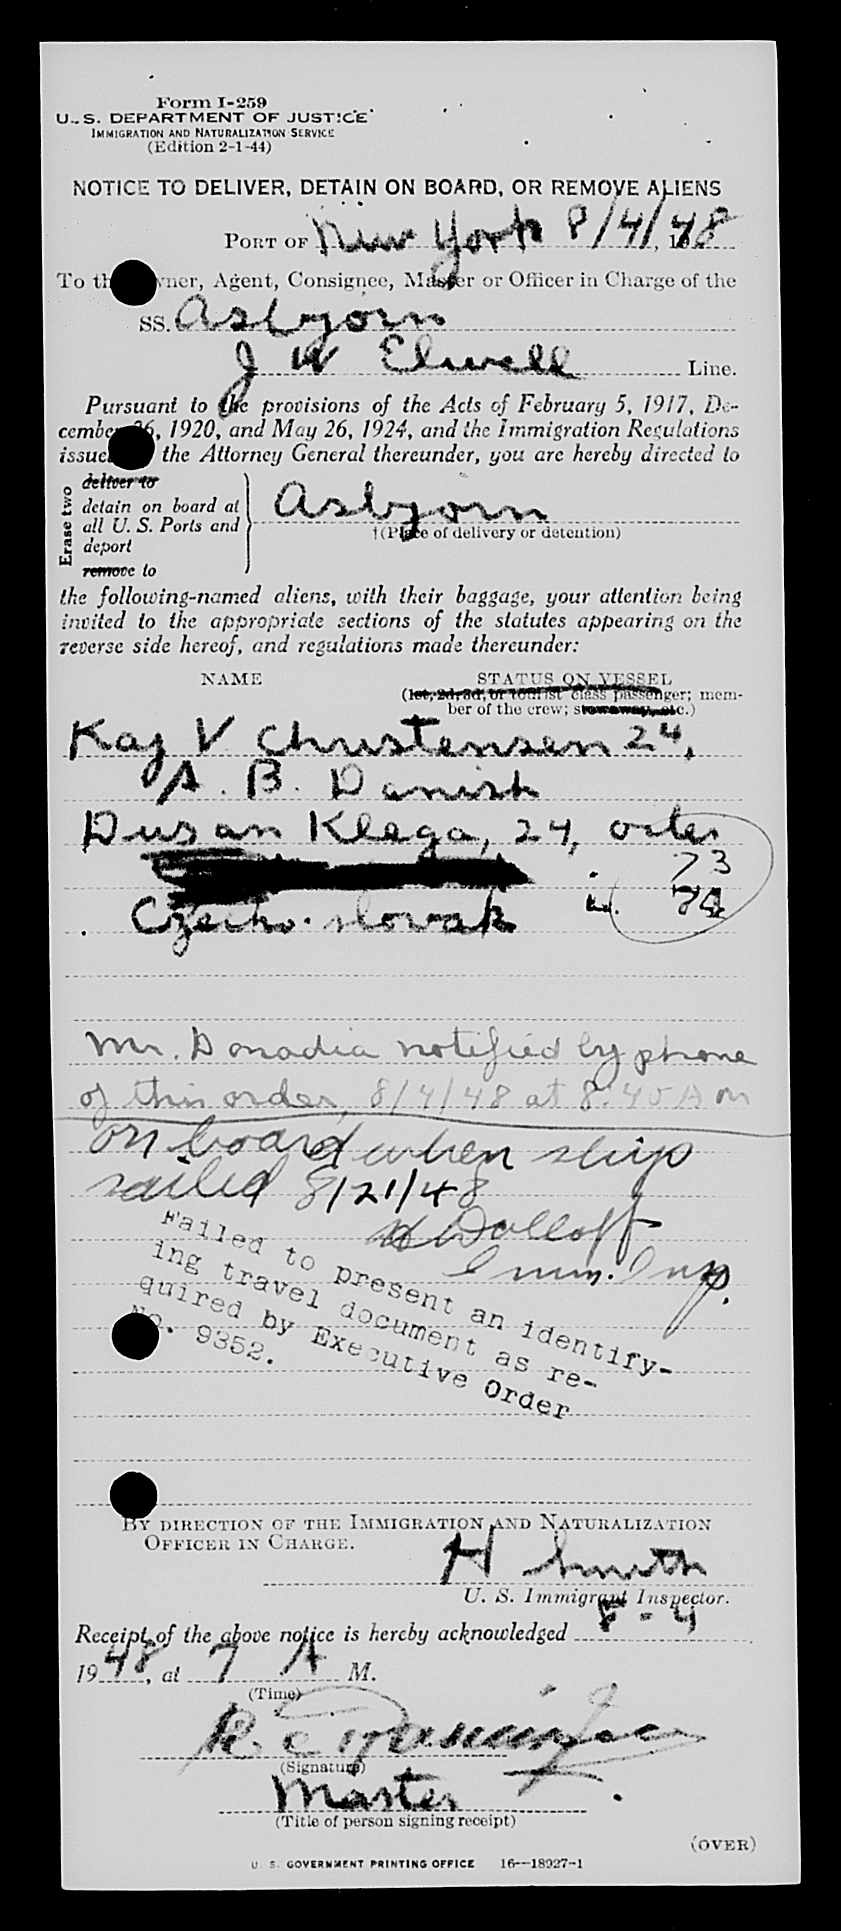 Form I-259
U. S. DEPARTMENT OF JUSTICE
IMMIGRATION AND NATURALIZATION SERVICE
(Edition 2-1-44)
NOTICE TO DELIVER, DETAIN ON BOARD, OR REMOVE ALIENS
PORT OF New York 8/4/48
To the Owner, Agent, Consignee, Master or Officer in Charge of the
SS. Asbjorn
J W Elwell Line.
Pursuant to the provisions of the Acts of February 5, 1917, De-
cember 26, 1920, and May 26, 1924, and the Immigration Regulations
issued the Attorney General thereunder, you are hereby directed to
Erase two
deliver to
detain on board at
all U. S. Ports and
deport
remove to
Asbjorn
†(Place of delivery or detention)
the following-named aliens, with their baggage, your attention being
invited to the appropriate sections of the statutes appearing on the
reverse side hereof, and regulations made thereunder:
NAME STATUS ON VESSEL
(1st, 2d, 3d, or tourist class passenger; mem-
ber of the crew; stowaway, etc.)
Kaj V Christensen 24,
A. B. Danish
Dusan Klega, 24, oiler
73
Czecho-slovak 74
Mr. Donadia notified by phone
of this order, 8/4/48 at 8:40 AM
on board when ship
sailed 8/21/48
Imm. Insp.
Failed to present an identify-
ing travel document as re-
quired by Executive Order
No. 9352.
BY DIRECTION OF THE IMMIGRATION AND NATURALIZATION
OFFICER IN CHARGE.
H Smith
U. S. Immigrant Inspector.
Receipt of the above notice is hereby acknowledged 8-4
1948, at 7 A M.
(Time)
(Signature)
Master
(Title of person signing receipt)
(OVER)
U. S. GOVERNMENT PRINTING OFFICE 16—18927-1